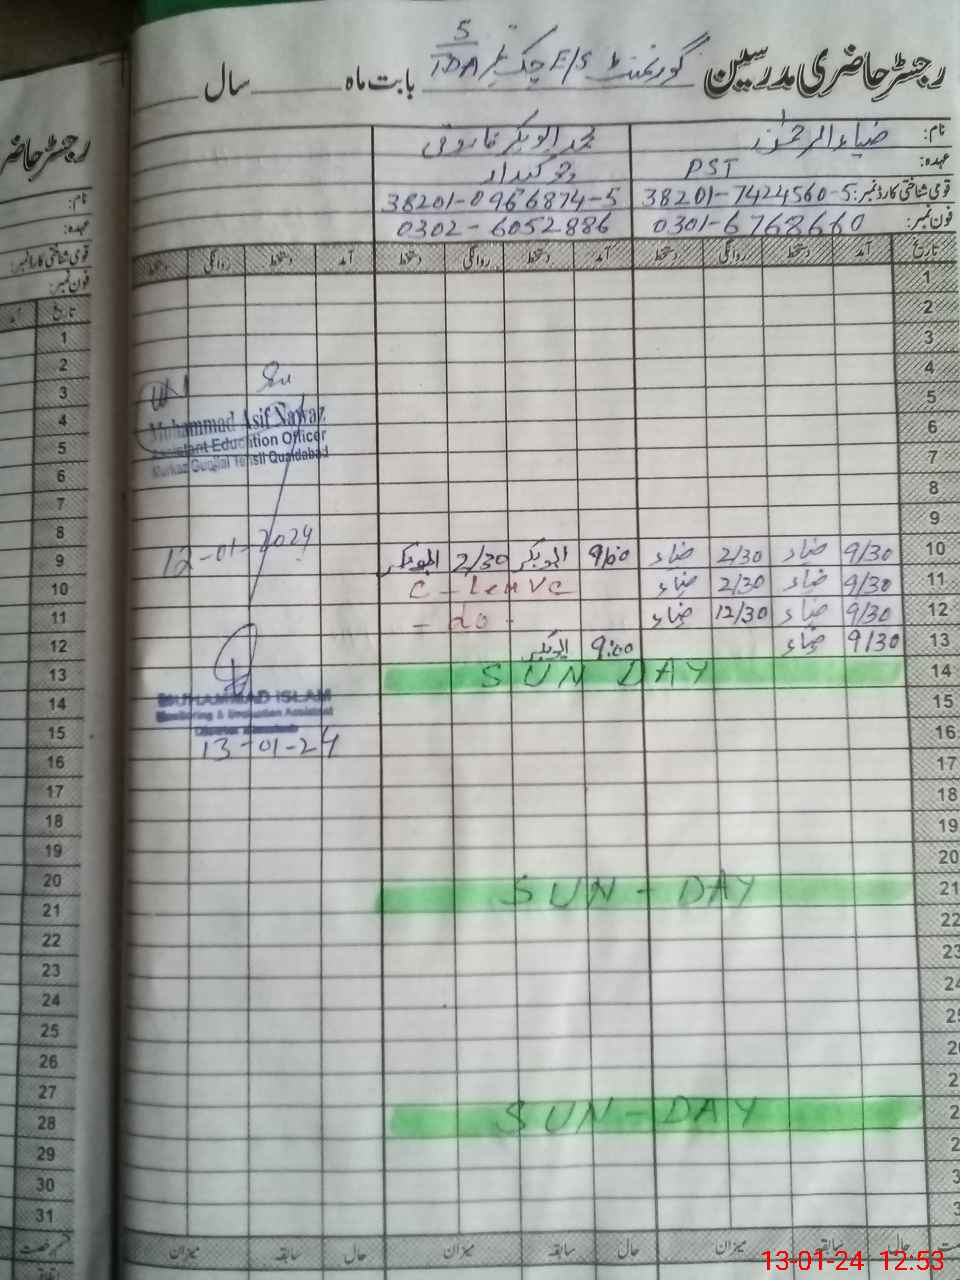 رجسٹر حاضری مدرسین گورنمنٹ E/S چک نمبر 5/TDA بابت ماہ سال
نام: ضیاء الرحمٰن محمد ابوبکر فاروق
عہدہ: PST چوکیدار
قومی شناختی کارڈ نمبر: 38201-7424560-5 38201-0966874-5
فون نمبر: 0301-6768660 0302-6052886
تاریخ آمد دستخط روانگی دستخط آمد دستخط روانگی دستخط آمد دستخط روانگی دستخط
1
2
3
4
5
6
7
8
9
10 9/30 ضیاء 2/30 ضیاء 9/00 ابوبکر 2/30 ابوبکر
11 9/30 ضیاء 2/30 ضیاء C-Leave
12 9/30 ضیاء 12/30 ضیاء - do -
13 9/30 ضیاء 9:00 ابوبکر
14 SUNDAY
15
16
17
18
19
20
21 SUN-DAY
22
23
SUN-DAY
حال سابقہ میزان حال سابقہ میزان حال سابقہ میزان
Muhammad Asif Nawaz
Assistant Education Officer
Markaz Gunjial Tehsil Quaidabad
12-01-2024
MUHAMMAD ISLAM
Monitoring & Evaluation Assistant
13-01-24
رجسٹر حاضر
نام:
عہدہ:
قومی شناختی کارڈ نمبر:
فون نمبر:
تاریخ
1
2
3
4
5
6
7
8
9
10
11
12
13
14
15
16
17
18
19
20
21
22
23
24
25
26
27
28
29
30
31
13-01-24 12:53